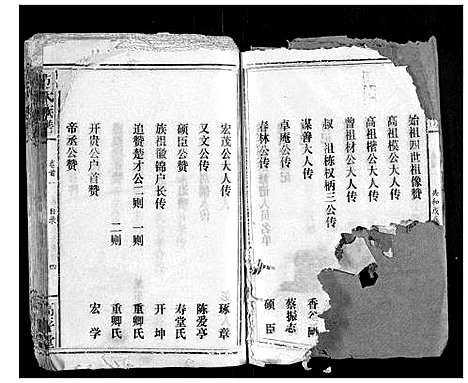 始祖四世祖像赞
高祖模公大人传
高祖楷公大人传
曾祖材公大人传
叔祖栋权柄三公传
谋善大人传
卓庵公传
春林公传
蔡振志
硕臣
宏茂公大人传 琢章
又文公传 陈爱亭
硕臣公赞 寿堂氏
族祖徽锦户长传 开坤
追赞楚才公二则 一则 重卿氏
二则 重卿氏
开贵公户首赞 宏学
帝丞公赞
卷首
目录
四